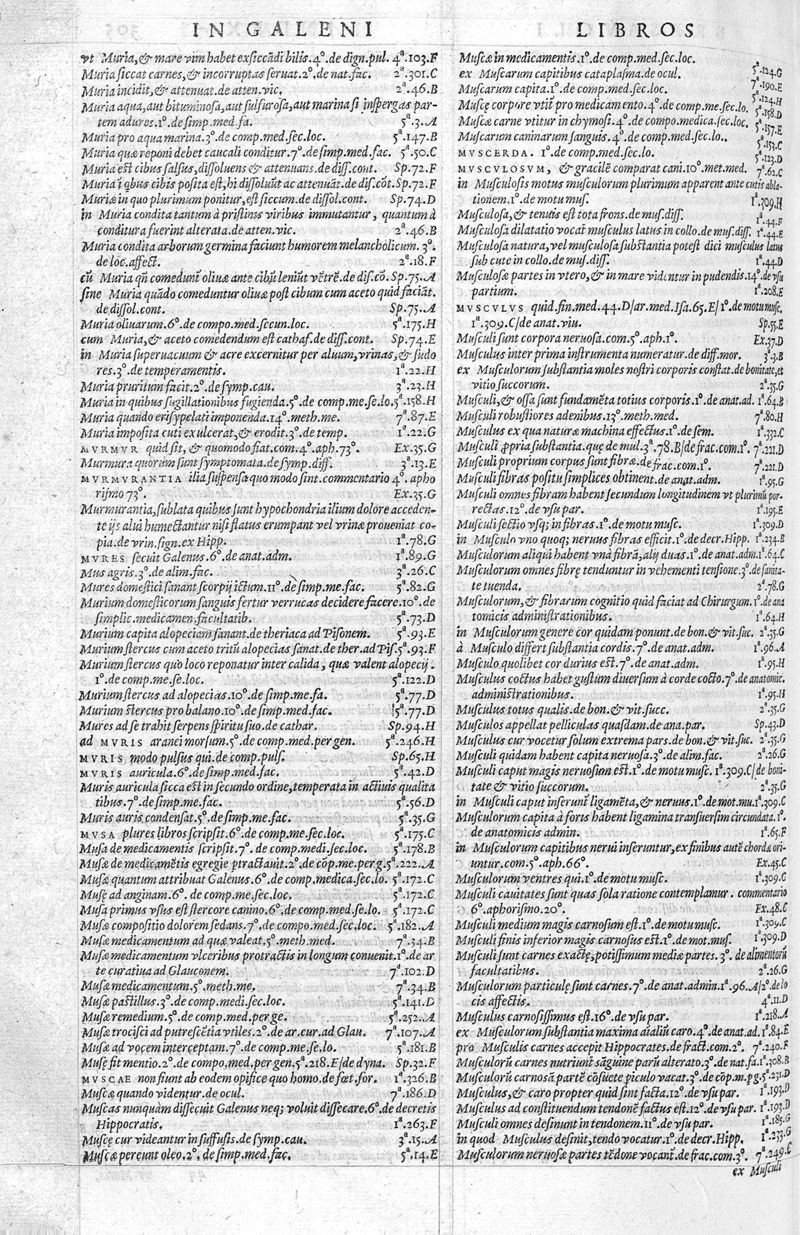 IN GALENI
LIBROS
vt Muria,& mare vim habet exsiccãdi bilis.4º.de dign.pul. 4ª.103.F
Muria siccat carnes,& incorruptas seruat.2º.de nat.fac. 2ª.301.C
Muria incidit,& attenuat.de atten.vic. 2ª.46.B
Muria aqua,aut bituminosa,aut sulfurosa,aut marina si inspergas par-
tem adures.1º.de simp.med.fa. 5ª.3.A
Muria pro aqua marina.3º.de comp.med.sec.loc. 5ª.147.B
Muria quæ reponi debet caucali conditur.7º.de simp.med.fac. 5ª.50.C
Muria est cibus salsus,dissoluens & attenuans.de diss.cont. Sp.72.F
Muria ĩ qbus cibis posita est,hi dissoluũt ac attenuãt.de dis.cõt.Sp.72.F
Muria in quo plurimum ponitur,est siccum.de dissol.cont. Sp.74.D
in Muria condita tantum à pristinis viribus immutantur, quantum à
conditura fuerint alterata.de atten.vic. 2ª.46.B
Muria condita arborum germina faciunt humorem melancholicum. 3º.
de loc.affect. 2ª.18.F
cũ Muria qñ comedunt̃ oliuæ ante cibũ leniũt vẽtrẽ.de dis.cõ.Sp.75.A
sine Muria quãdo comeduntur oliuæ post cibum cum aceto quid faciãt.
de dissol.cont. Sp.75.A
Muria oliuarum.6º.de compo.med.secun.loc. 5ª.175.H
cum Muria,& aceto comedendum est cathaf.de diss.cont. Sp.74.E
in Muria superuacuum & acre excernitur per aluum,vrinas,& sudo
res.3º.de temperamentis. 1ª.22.H
Muria pruritum facit.2º.de symp.cau. 3ª.23.H
Muria in quibus sugillationibus fugienda.5º.de comp.me.se.lo.5ª.158.H
Muria quando erisypelati imponenda.14º.meth.me. 7ª.87.E
Muria imposita cuti exulcerat,& erodit.3º.de temp. 1ª.22.G
MVRMVR quid sit, & quomodo fiat.com.4º.aph.73º. Ex.35.G
Murmura quorum sunt symptomata.de symp.diff. 3ª.13.E
MVRMVRANTIA ilia suspensa quo modo sint.commentario 4º. apho
rismo 73º. Ex.35.G
Murmurantia,sublata quibus sunt hypochondria ilium dolore acceden-
te ijs alui humectantur nisi flatus erumpant vel vrinæ proueniat co-
pia.de vrin.sign.ex Hipp. 1ª.78.G
MVRES secuit Galenus.6º.de anat.adm. 1ª.89.G
Mus agris.3º.de alim.fac. 2ª.26.C
Mures domestici sanant scorpij ictum.11º.de simp.me.fac. 5ª.82.G
Murium domesticorum sanguis fertur verrucas decidere facere.10º.de
simplic.medicamen.facultatib. 5ª.73.D
Murium capita alopeciam sanant.de theriaca ad Pisonem. 5ª.93.E
Murium stercus cum aceto tritũ alopecias sanat.de ther.ad Pis.5ª.93.F
Murium stercus quo loco reponatur inter calida, quæ valent alopecij.
1º.de comp.me.se.loc. 5ª.122.D
Murium stercus ad alopecias.10º.de simp.me.fa. 5ª.77.D
Murium stercus pro balano.10º.de simp.med.fac. 5ª.77.D
Mures ad se trahit serpens spiritu suo.de cathar. Sp.94.H
ad MVRIS aranei morsum.5º.de comp.med.per gen. 5ª.246.H
MVRIS modo pulsus qui.de comp.puls. Sp.65.H
MVRIS auricula.6º.de simp.med.fac. 5ª.42.D
Muris auricula sicca est in secundo ordine,temperata in actiuis qualita
tibus.7º.de simp.me.fac. 5ª.56.D
Muris auris condensat.5º.de simp.me.fac. 5ª.35.G
MVSA plures libros scripsit.6º.de comp.me.sec.loc. 5ª.175.C
Musa de medicamentis scripsit.7º.de comp.medi.sec.loc. 5ª.178.B
Musa de medicamẽtis egregie ptractauit.2º.de cõp.me.per g.5ª.222.A
Musæ quantum attribuat Galenus.6º.de comp.medica.sec.lo. 5ª.172.C
Musę ad anginam.6º.de comp.med.sec.loc. 5ª.172.C
Musa primus vsus est stercore canino.6º.de comp.med.se.lo. 5ª.172.C
Musæ compositio dolorem sedans.7º.de compo.med.sec.loc. 5ª.182.A
Musæ medicamentum ad quæ valeat.5º.meth.med. 7ª.34.B
Musæ medicamentum vlceribus protractis in longum conuenit.1º.de ar
te curatiua ad Glauconem. 7ª.102.D
Musæ medicamentum.5º.meth.me. 7ª.34.B
Musæ pastillus.3º.de comp.medi.sec.loc. 5ª.141.D
Musæ remedium.5º.de comp.med.per ge. 5ª.252.A
Musæ trocisci ad putrescẽtia vtiles.2º.de ar.cur.ad Glau. 7ª.107.A
Musæ ad vocem interceptam.7º.de comp.me.se.lo. 5ª.181.B
Musę fit mentio.2º.de compo,med.per gen.5ª.218.E/de dyna. Sp.32.F
MVSCAE non fiunt ab eodem opifice quo homo.de fœt.for. 1ª.326.B
Muscæ quando videntur.de ocul. 7ª.186.D
Muscas nunquam dissecuit Galenus neq; voluit dissecare.6º.de decretis
Hippocratis. 1ª.263.F
Muscę cur videantur in suffusis.de symp.cau. 3ª.15.A
Muscæ pereunt oleo.2º. de simp.med.fac. 5ª.14.E
Muscæ in medicamentis.1º.de comp.med.sec.loc. 5ª.124.G
ex Muscarum capitibus cataplasma.de ocul. 7ª.190.E
Muscarum capita.1º.de comp.med.sec.loc. 5ª.124.H
Muscę corpore vtit̃ pro medicamento.4º.de comp.me.sec.lo. 5ª.158.D
Muscæ carne vtitur in chymosi.4º.de compo.medica.sec.loc. 5ª.157.E
Muscarum caninarum sanguis.4º.de comp.med.sec.lo. 5ª.153.C
MVSCERDA. 1º.de comp.med.sec.lo. 5ª.123.D
MVSCVLOSVM, & gracilẽ comparat cani.10º.met.med. 7ª.62.C
in Musculosis motus musculorum plurimum apparent ante cutis abla-
tionem.1º.de motu mus. 1ª.309.H
Musculosa,& tenuis est tota frons.de mus.diss. 1ª.44.F
Musculosa dilatatio vocat̃ musculus latus in collo.de mus.diss. 1ª.44.E
Musculosa natura,vel musculosa substantia potest dici musculus latus
sub cute in collo.de mus.diss. 1ª.44.D
Musculosæ partes in vtero,& in mare videntur in pudendis.14º.de vsu
partium. 1ª.208.E
MVSCVLVS quid.fin.med.44.D/ar.med.Isa.65.E/1º.de motu musc.
1ª.309.C/de anat.viu. Sp.55.E
Musculi sunt corpora neruosa.com.5º.aph.1º. Ex.37.D
Musculus inter prima instrumenta numeratur.de diff.mor. 3ª.3.B
ex Musculorum substantia moles nostri corporis constat.de bonitate,et
vitio succorum. 2ª.35.G
Musculi,& ossa sunt fundamẽta totius corporis.1º.de anat.ad. 1ª.64.B
Musculi robustiores adenibus.13º.meth.med. 7ª.80.H
Musculus ex qua naturæ machina effectus.1º.de sem. 1ª.332.C
Musculi propria substantia.que de mul.3ª.78.B/de frac.com.1º. 7ª.221.D
Musculi proprium corpus sunt fibræ.de frac.com.1º. 7ª.221.D
Musculi fibras positu simplices obtinent.de anat.adm. 1ª.95.G
Musculi omnes fibram habent secundum longitudinem vt plurimũ por-
rectas.12º.de vsu par. 1ª.195.E
Musculi sectio vsq; in fibras.1º.de motu musc. 1ª.309.D
in Musculo vno quoq; neruus fibras efficit.1º.de decr.Hipp. 1ª.234.B
Musculorum aliquã habent vnã fibrã,alij duas.1º.de anat.adm.1ª.64.C
Musculorum omnes fibrę tenduntur in vehementi tensione.3º.de sanita-
te tuenda. 2ª.78.G
Musculorum,& fibrarum cognitio quid faciat ad Chirurgum.1º.de ana
tomicis administrationibus. 1ª.64.H
in Musculorum genere cor quidam ponunt.de bon.& vit.suc. 2ª.35.G
à Musculo differt substantia cordis.7º.de anat.adm. 1ª.96.A
Musculo quolibet cor durius est.7º.de anat.adm. 1ª.95.H
Musculus coctus habet gustum diuersum à corde cocto.7º.de anatomic.
administrationibus. 1ª.95.H
Musculus totus qualis.de bon.& vit.succ. 2ª.35.G
Musculos appellat pelliculas quasdam.de ana.par. Sp.43.D
Musculus cur vocetur solum extrema pars.de bon.& vit.suc. 2ª.35.G
Musculi quidam habent capita neruosa.3º.de alim.fac. 2ª.26.G
Musculi caput magis neruosum est.1º.de motu musc. 1ª.309.C/de boni-
tate & vitio succorum. 2ª.35.G
in Musculi caput inserunt̃ ligamẽta,& neruus.1º.de mot.mu.1ª.309.C
Musculorum capita à foris habent ligamina transuersim circundata.1º.
de anatomicis admin. 1ª.65.F
in Musculorum capitibus nerui inseruntur,ex finibus autẽ chordæ ori-
untur.com.5º.aph.66º. Ex.45.C
Musculorum ventres qui.1º.de motu musc. 1ª.309.C
Musculi cauitates sunt quas sola ratione contemplamur. commentario
6º.aphorismo.20º. Ex.48.C
Musculi medium magis carnosum est.1º.de motu musc. 1ª.309.C
Musculi finis inferior magis carnosus est.1º.de mot.mus. 1ª.309.D
Musculi sunt carnes exactę,potissimum mediæ partes. 3º. de alimentorũ
facultatibus. 2ª.26.G
Musculorum particulę sunt carnes.7º.de anat.admin.1ª.96.A/2º.de lo
cis affectis. 4ª.11.D
Musculus carnosissimus est.16º.de vsu par. 1ª.218.A
ex Musculorum substantia maxima aĩaliũ caro.4º.de anat.ad.1ª.84.E
pro Musculis carnes accepit Hippocrates.de fract.com.2º. 7ª.240.F
Musculorũ carnes nutriunt sãguine parũ alterato.3º.de nat.fa.1ª.308.B
Musculorũ carnosã partẽ cõsuete piculo vacat.3º.de cõp.m.pg.5ª.231.D
Musculus,& caro propter quid sint facta.12º.de vsu par. 1ª.193.D
Musculus ad constituendum tendonẽ factus est.12º.de vsu par. 1ª.193.D
Musculi omnes desinunt in tendonem.11º.de vsu par. 1ª.185.G
in quod Musculus desinit,tendo vocatur.1º.de decr.Hipp. 1ª.233.G
Musculorum neruosæ partes tẽdone vocant̃.de frac.com.3º. 7ª.249.C
ex Musculi